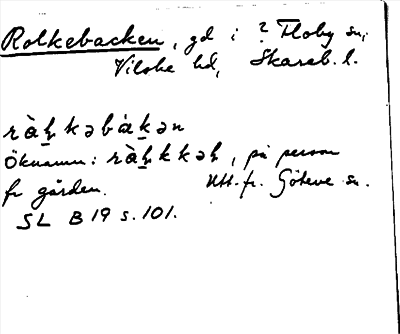 Rolkebacken, gd i ? Floby sn,
Vilske hd, Skarab. l.
ràḥkəbákən
Öknamn: , på person
fr gården. Utt. fr. Göteve sn.
SL B 19 s. 101.